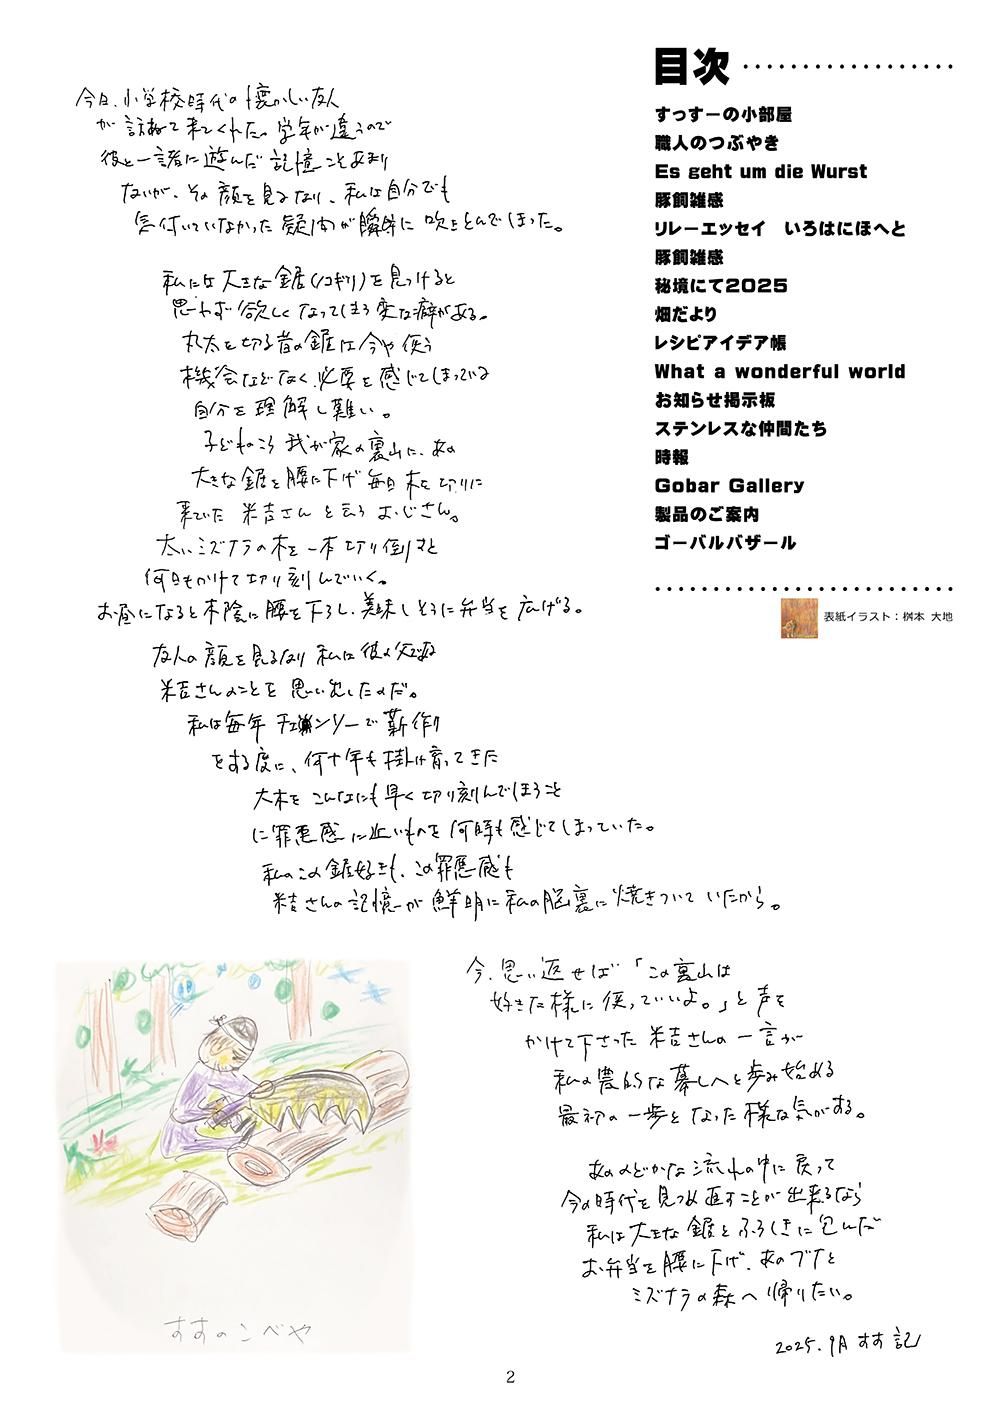 今日、小学校時代の懐かしい友人
が訪ねて来てくれた。学年が違うので
彼と一諸に遊んだ記憶こそあまり
ないが、その顔を見るなり、私は自分でも
気付いていなかった疑問が瞬時に吹きとんでしまった。
私には大きな鋸(ノコギリ)を見つけると
思わず欲しくなってしまう変な癖がある。
丸太を切る昔の鋸は今や使う
機会などなく、必要を感じてしまっている
自分を理解し難い。
子どものころ我が家の裏山に、あの
大きな鋸を腰に下げ毎日木を切りに
来ていた米吉さんと云うおじさん。
太いミズナラの木を一本切り倒すと
何日もかけて切り刻んでいく。
お昼になると木陰に腰を下ろし、美味しそうに弁当を広げる。
友人の顔を見るなり私は彼の父である
米吉さんのことを思い出したのだ。
私は毎年チェンソーで薪作り
をする度に、何十年も掛け育ってきた
大木をこんなにも早く切り刻んでしまうこと
に罪悪感に近いものを何時も感じてしまっていた。
私のこの鋸好きも、この罪悪感も
米吉さんの記憶が鮮明に私の脳裏に焼きついていたから。
今、思い返せば「この裏山は
好きな様に使っていいよ。」と声を
かけて下さった米吉さんの一言が
私の農的な暮しへと歩み始める
最初の一歩となった様な気がする。
あののどかな流れの中に戻って
今の時代を見つめ直すことが出来るなら
私は大きな鋸とふろしきに包んだ
お弁当を腰に下げ、あのブナと
ミズナラの森へ帰りたい。
2025.9月 すす記
すすのこべや
目次
すっすーの小部屋
職人のつぶやき
Es geht um die Wurst
豚飼雑感
リレーエッセイ　いろはにほへと
豚飼雑感
秘境にて2025
畑だより
レシピアイデア帳
What a wonderful world
お知らせ掲示板
ステンレスな仲間たち
時報
Gobar Gallery
製品のご案内
ゴーバルバザール
表紙イラスト：桝本 大地
2